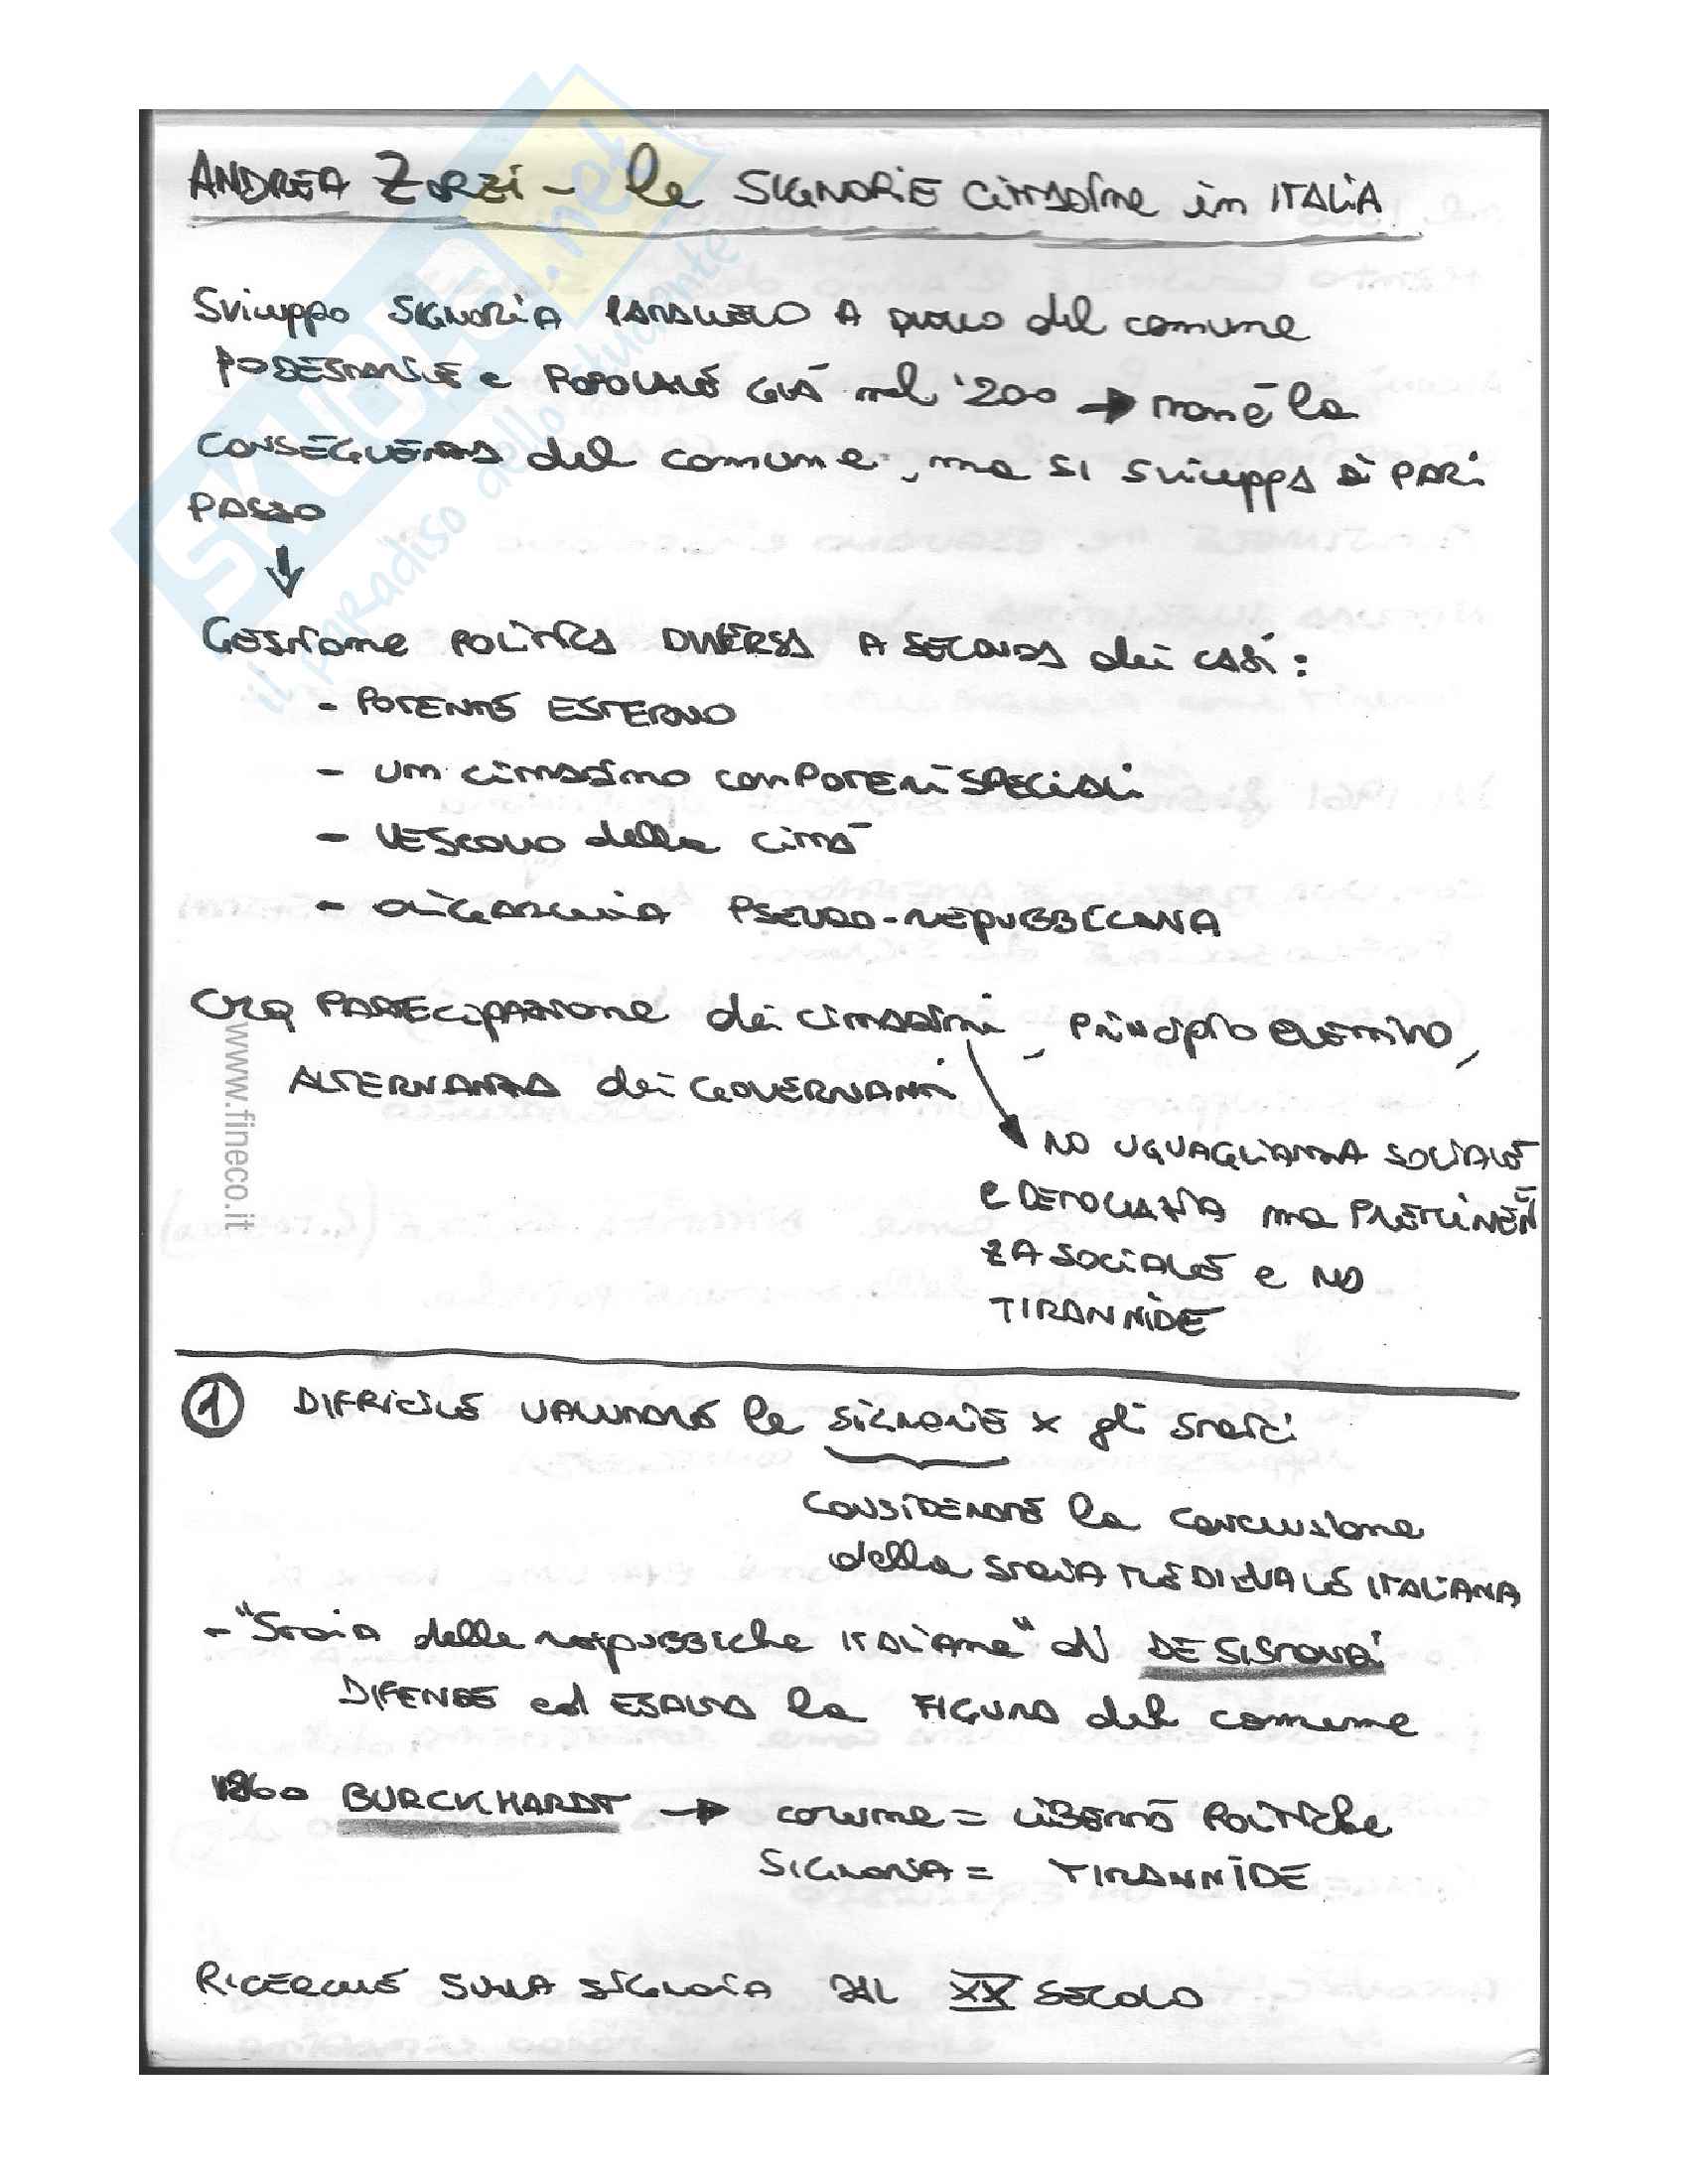 ANDREA ZORZI - le SIGNORIE cittadine in ITALIA
Sviluppo SIGNORIA PARALLELO A quello del comune
PODESTARILE e POPOLARE GIÀ nel '200 → non è la
CONSEGUENZA del comune, ma SI SVILUPPA DI PARI
PASSO
↓
GESTIONE POLITICA DIVERSA A SECONDA dei CASI:
- POTENTE ESTERNO
- un cittadino con POTERI SPECIALI
- VESCOVO della città
- OLIGARCHIA PSEUDO-REPUBBLICANA
PARTECIPAZIONE dei cittadini, PRINCIPIO ELETTIVO,
ALTERNANZA dei GOVERNANTI
NO UGUAGLIANZA SOCIALE
e DEMOCRAZIA ma PREMINEN
ZA SOCIALE e NO
TIRANNIDE
1 DIFFICILE VALUTARE le SIGNORIE x gli STORICI
CONSIDERATE la CONCLUSIONE
della STORIA MEDIEVALE ITALIANA
- "STORIA delle REPUBBICHE ITALIANE" di DE SISMONDI
DIFENDE ed ESALTA la FIGURA del comune
1860 BURCKHARDT → COMUNE = LIBERTÀ POLITICHE
SIGNORIA = TIRANNIDE
RICERCHE SULLA SIGNORIA DAL XX SECOLO
www.fineco.it
SKUOLA.net
il paradiso dello studente